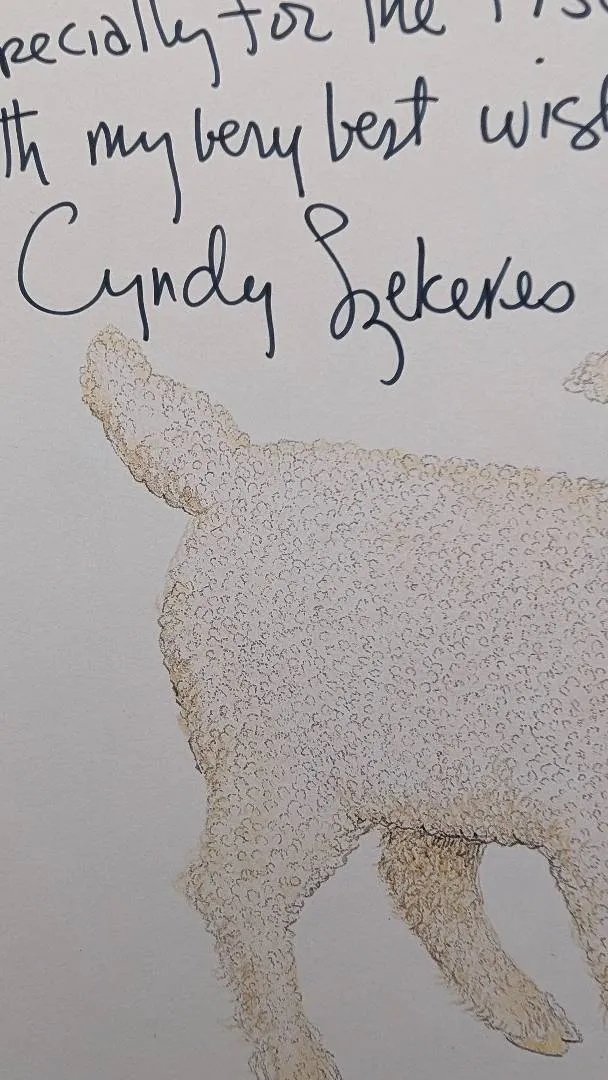 pecially for the
th my very best wish
Cyndy Szekeres